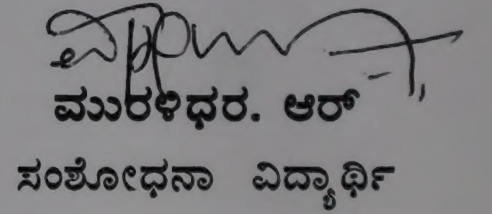 ಮುರಳಿಧರ. ಆರ್
ಸಂಶೋಧನಾ ವಿದ್ಯಾರ್ಥಿ